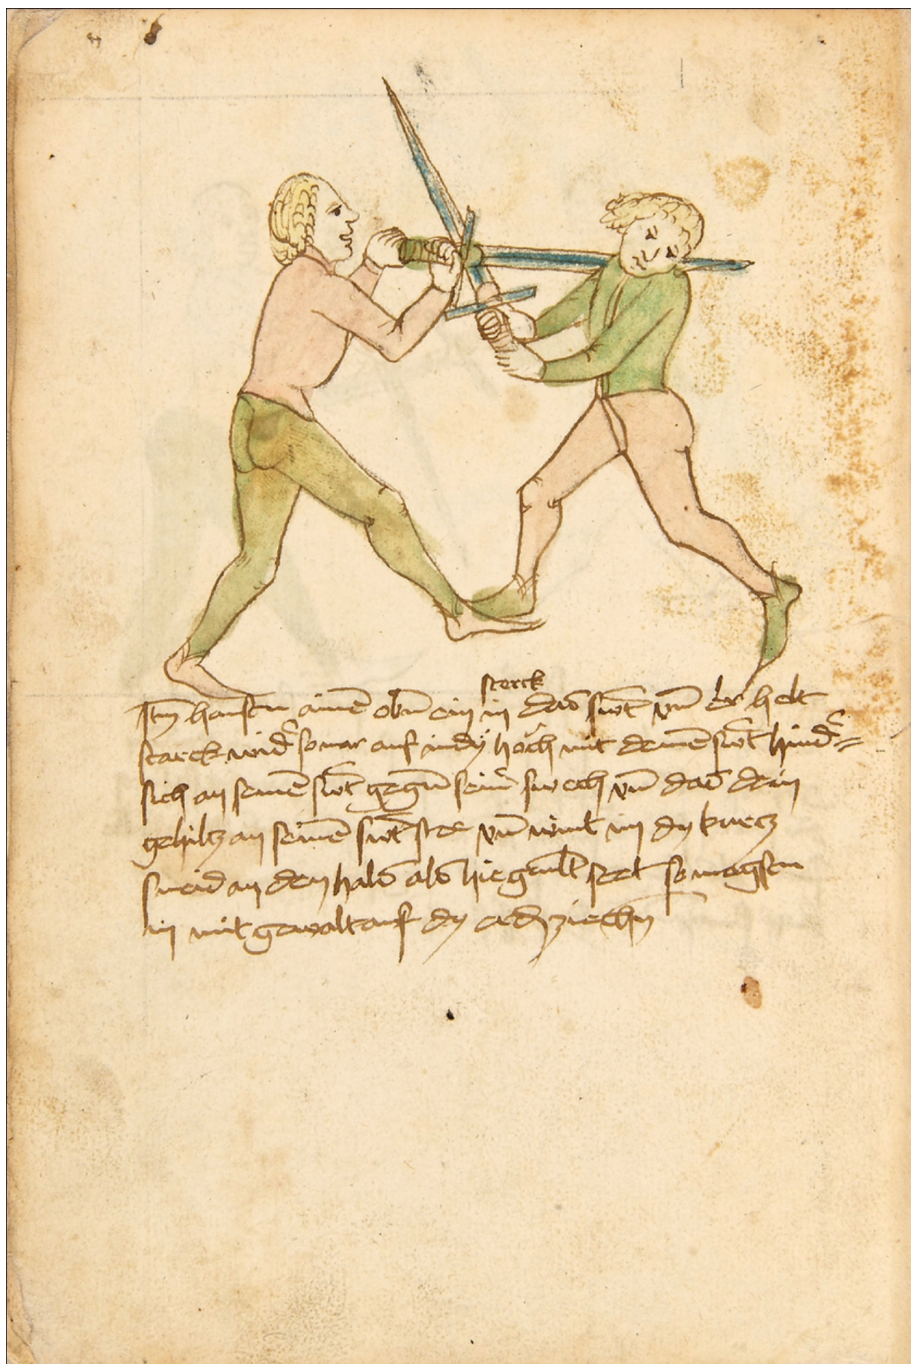 sterck
Itm̄ hawstu ainē obn̄ ein in das swt̄ vn̄ er helt
starck wid̄ so var auf in dy hoch mit deinē swt̄ hind̄=
sich an seinē swt̄ gegn̄ sein̄ swech vn̄ das dein
gehiltz an seinē swt̄ stee vn̄ nimt im dy kurcz
sneid an den hals als hie gemlt stet so magstu
in mit gewalt auf dy erd ziechn̄